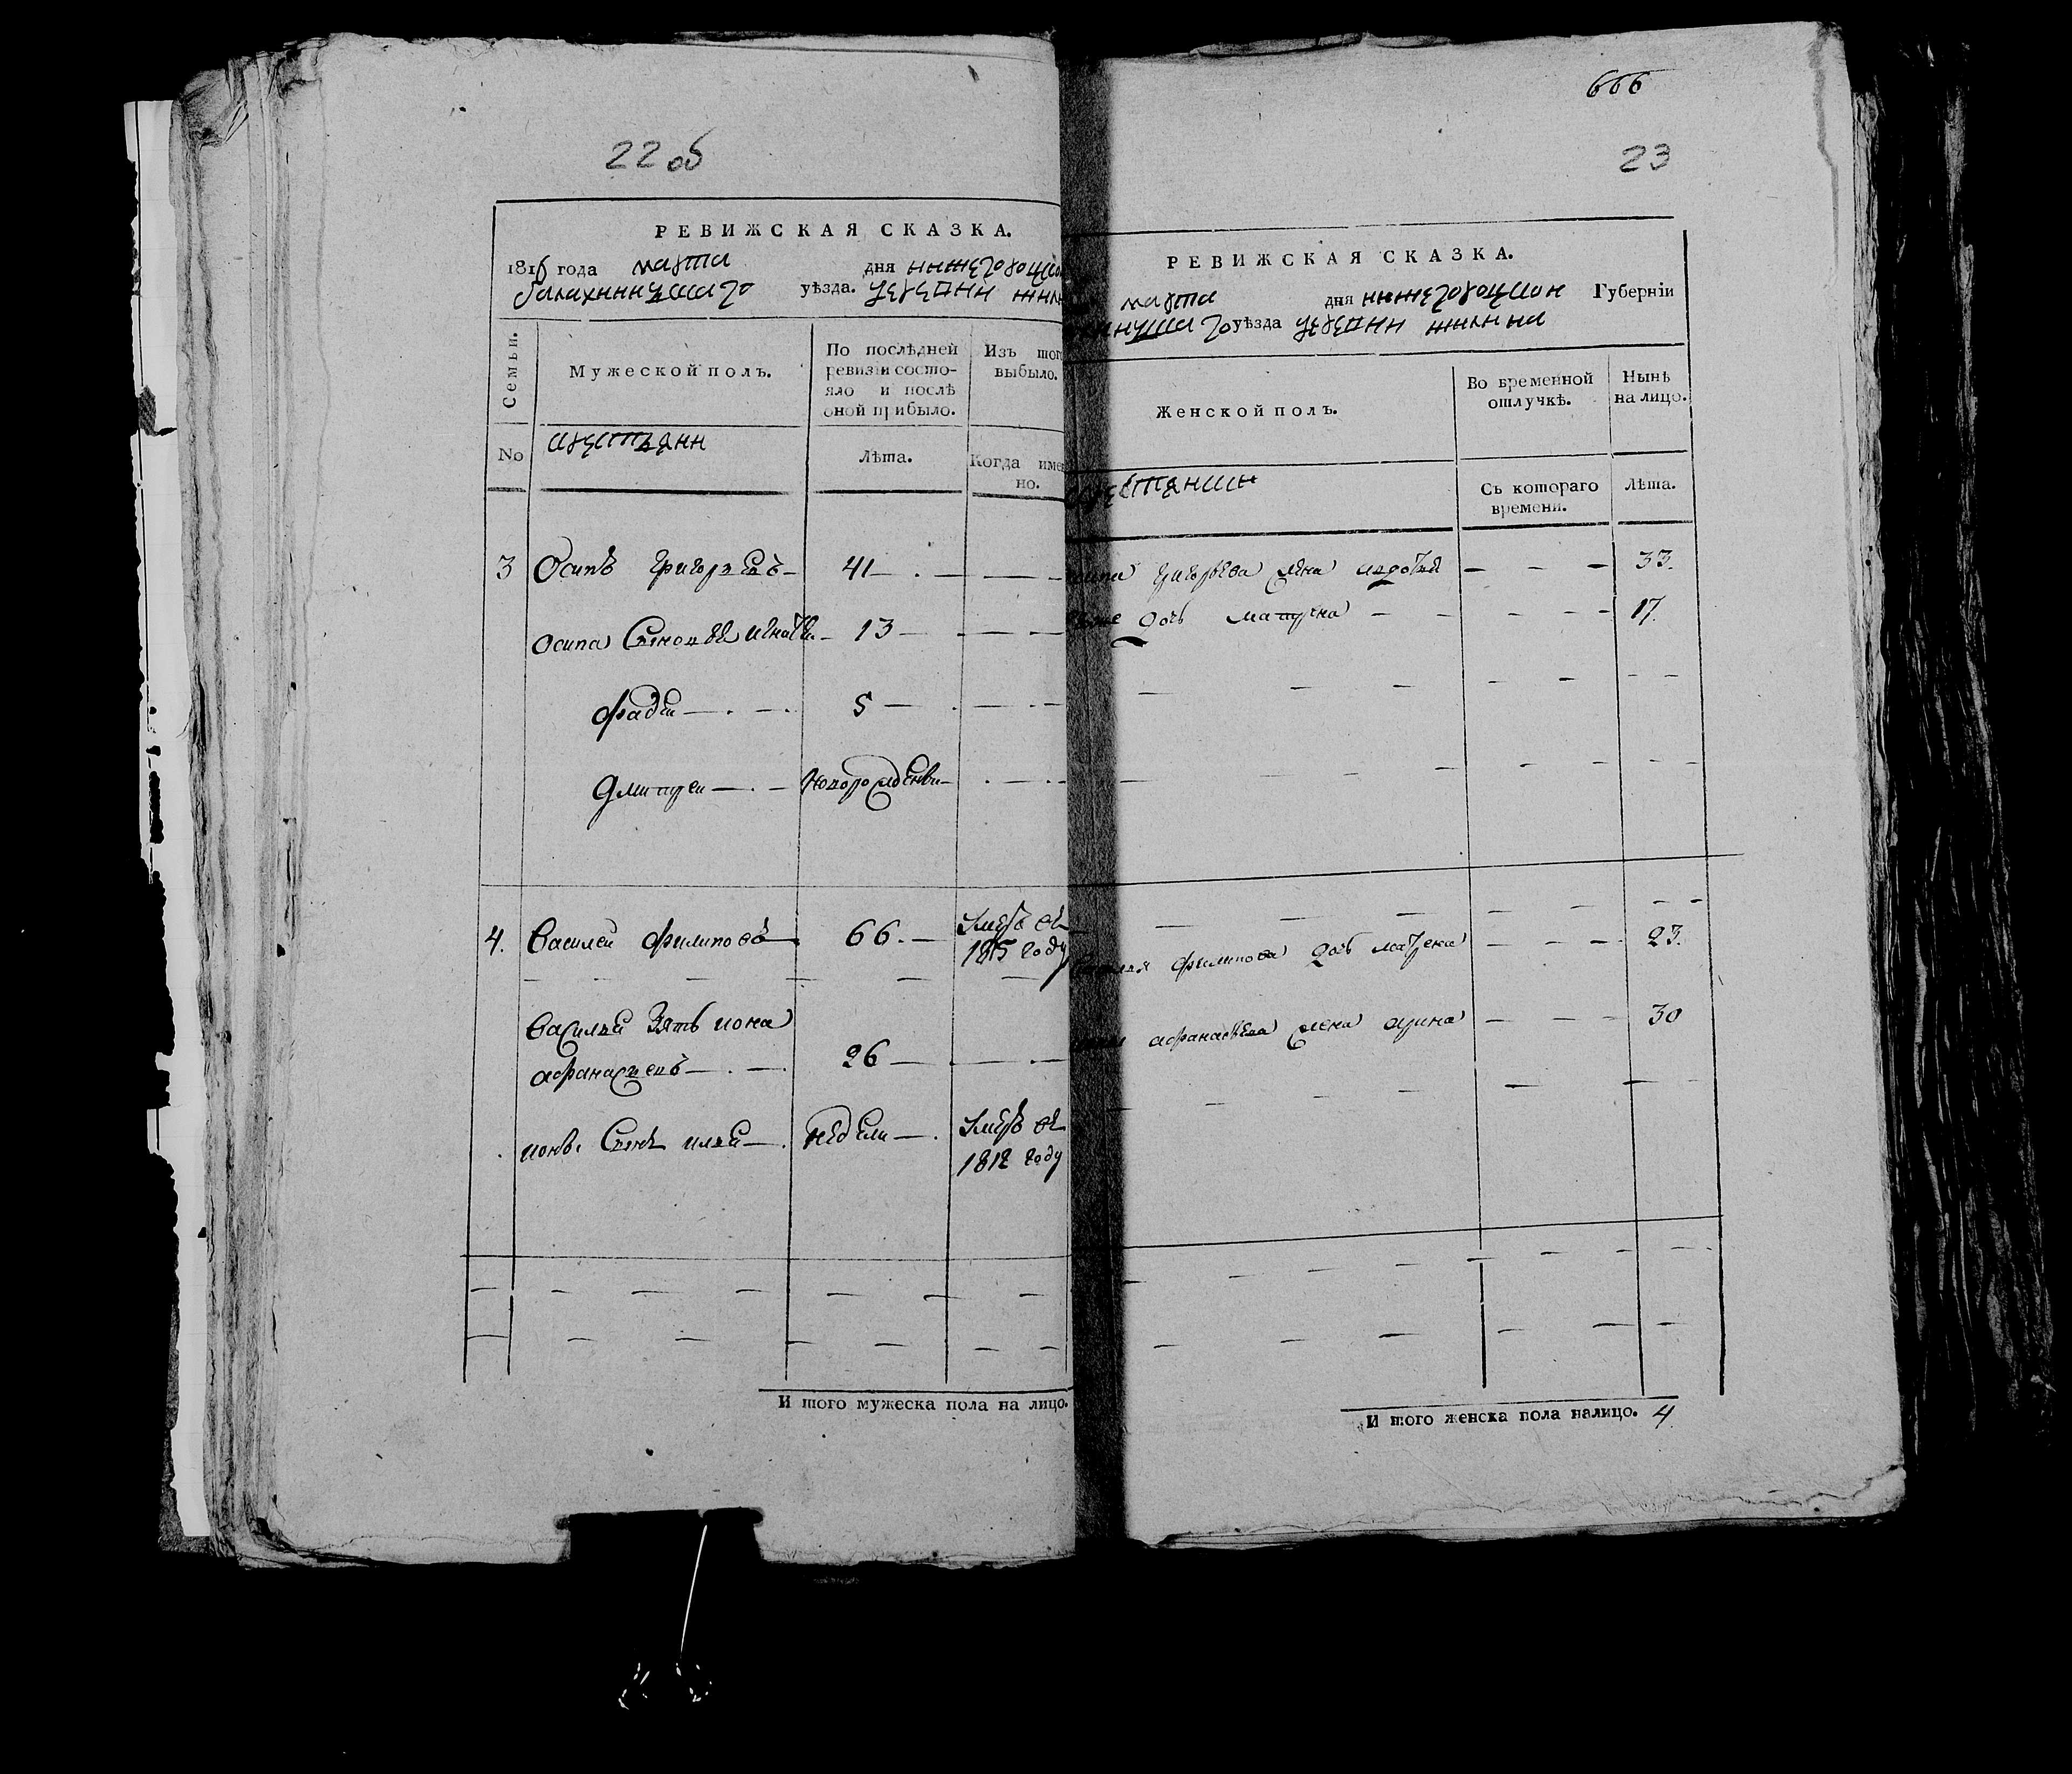 22 об
РЕВИЖСКАЯ СКАЗКА.
1816 года марта дня нижегороцкои
балахнинцкаго уѣзда. деревни жил
Семьи.
Мужеской полъ.
По послѣдней ревизіи состояло и послѣ оной прибыло.
Изъ того выбыло.
No
крестьяни
Лѣта.
Когда имено.
3 Осипъ григорьевъ 41
осипа Сыновья игнатеи 13
фадеи 5
дмитреи новорожденнои
4. василеи филиповъ 66. умеръ въ 1815 году
василья Зять иона афанасьевъ 26
ионы Сынъ илья недели умеръ въ 1812 году
И того мужеска пола на лицо.
666
23
РЕВИЖСКАЯ СКАЗКА.
марта дня нижегороцкои Губерніи
уѣзда деревни жилны
Женской полъ.
Во временной отлучкѣ.
Нынѣ на лицо.
Съ котораго времени.
Лѣта.
григорьева жена 33.
дочь матрена 17.
филипова дочь матрена 23.
афанасьева жена арина 30
И того женска пола налицо. 4